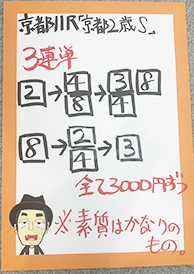 京都11R「京都2歳S」
3連単
2→4 8→3 4 8
8→2 4→3
全て3000円ずつ
※素質はかなりのもの。